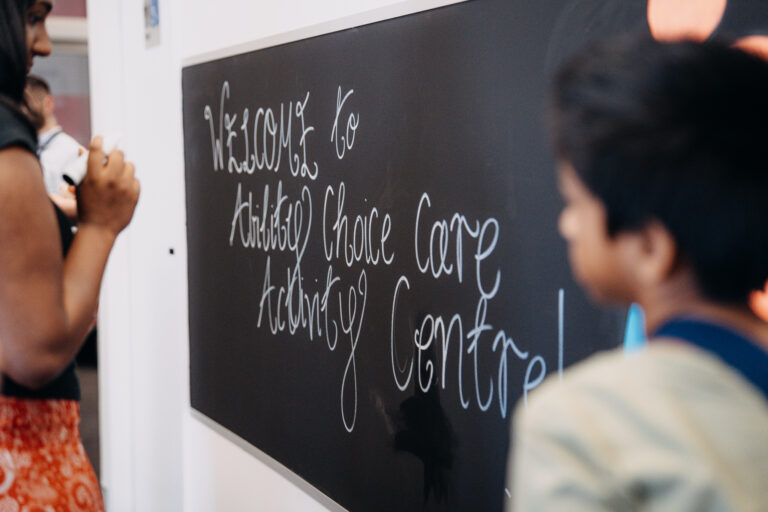 WELCOME to
Ability Choice Care
Activity Centre!